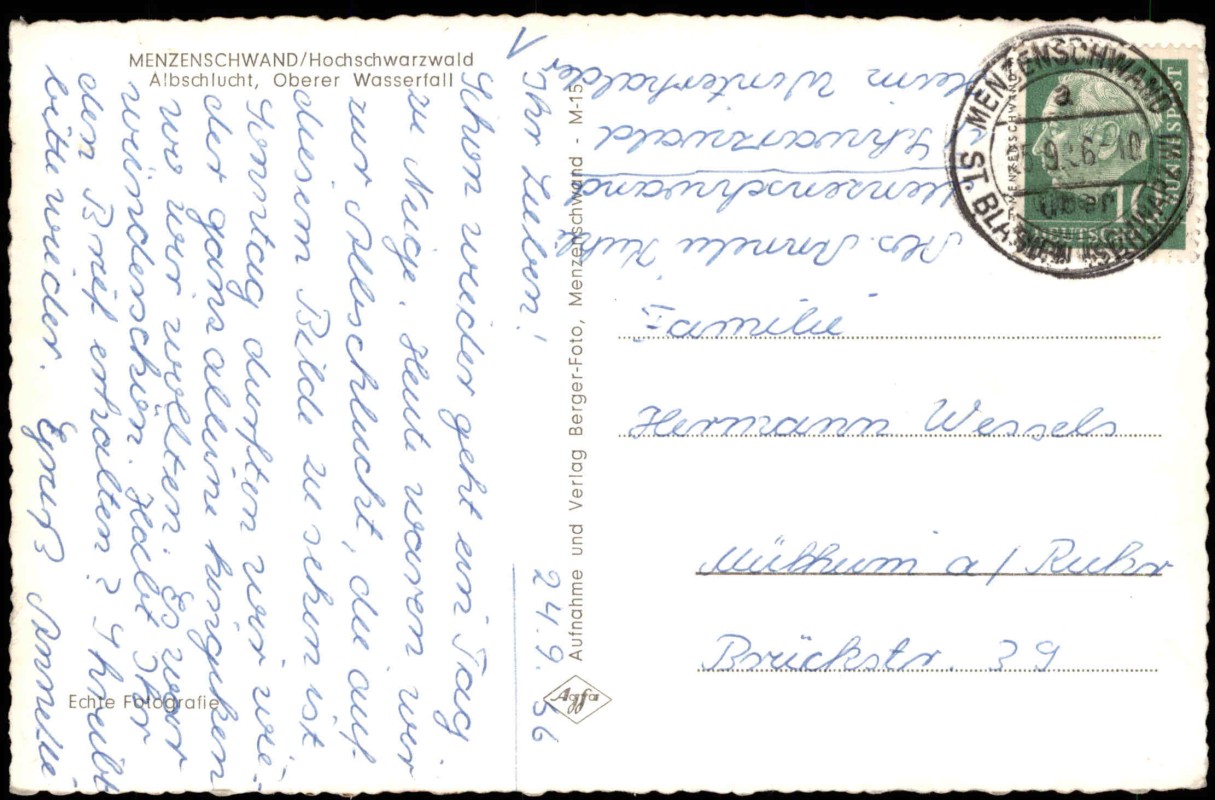 MENZENSCHWAND/Hochschwarzwald
Albschlucht, Oberer Wasserfall
24.9.56
Ihr Lieben!
Schon wieder geht ein Tag
zu Neige. Heute waren wir
zur Albschlucht, die auf
diesem Bilde zu sehen ist
Sonntag durften wir wie-
der ganz alleine hingehen
wo wir wollten. Es war
wunderschön. Habt Ihr
den Brief erhalten? Schreibt
bitte wieder. Gruß Annelie
Echte Fotografie
Aufnahme und Verlag Berger-Foto, Menzenschwand - M-15
Agfa
Abs. Annelie
Menzenschwand
Schwarzwald
Heim Winterhalder
MENZENSCHWAND
a
über
ST. BLASIEN (SCHWARZW)
10
DEUTSCHE
BUNDESPOST
Familie
Hermann Wessels
Mülheim a/ Ruhr
Brückstr. 39